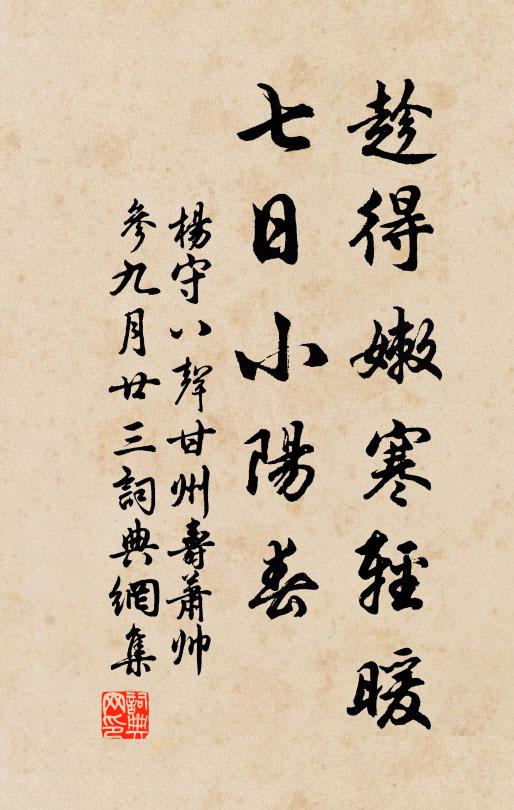 趁得嫩寒輕暖
七日小陽春
楊守八聲甘州壽蕭帥
參九月廿三詞典網集
詞典网印